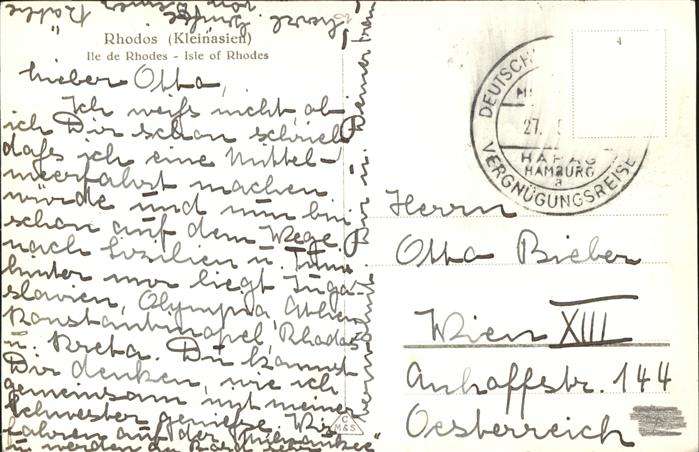 Rhodos (Kleinasien)
Ile de Rhodes - Isle of Rhodes
Lieber Otto,
Ich weiß nicht ob
ich Dir schon schrieb
daß ich eine Mittel-
meerfahrt machen
würde und nun bin
schon auf dem Wege
nach Sizilien u. Tunis
hinter mir liegt Juga-
slavien, Olympia, Athen
Konstantinopel, Rhodos
u. Kreta. Du kannst
Dir denken, wie ich
gemeinsam mit meiner
Schwester genieße. Wir
fahren auf der "Milwaukee"
u. werden an Bord sehr
DEUTSCH
27.
HAPAG
HAMBURG
a
VERGNÜGUNGSREISE
4
Herrn
Otto Bieber
Wien XIII
Auhofstr. 144
Oesterreich
C
M&S